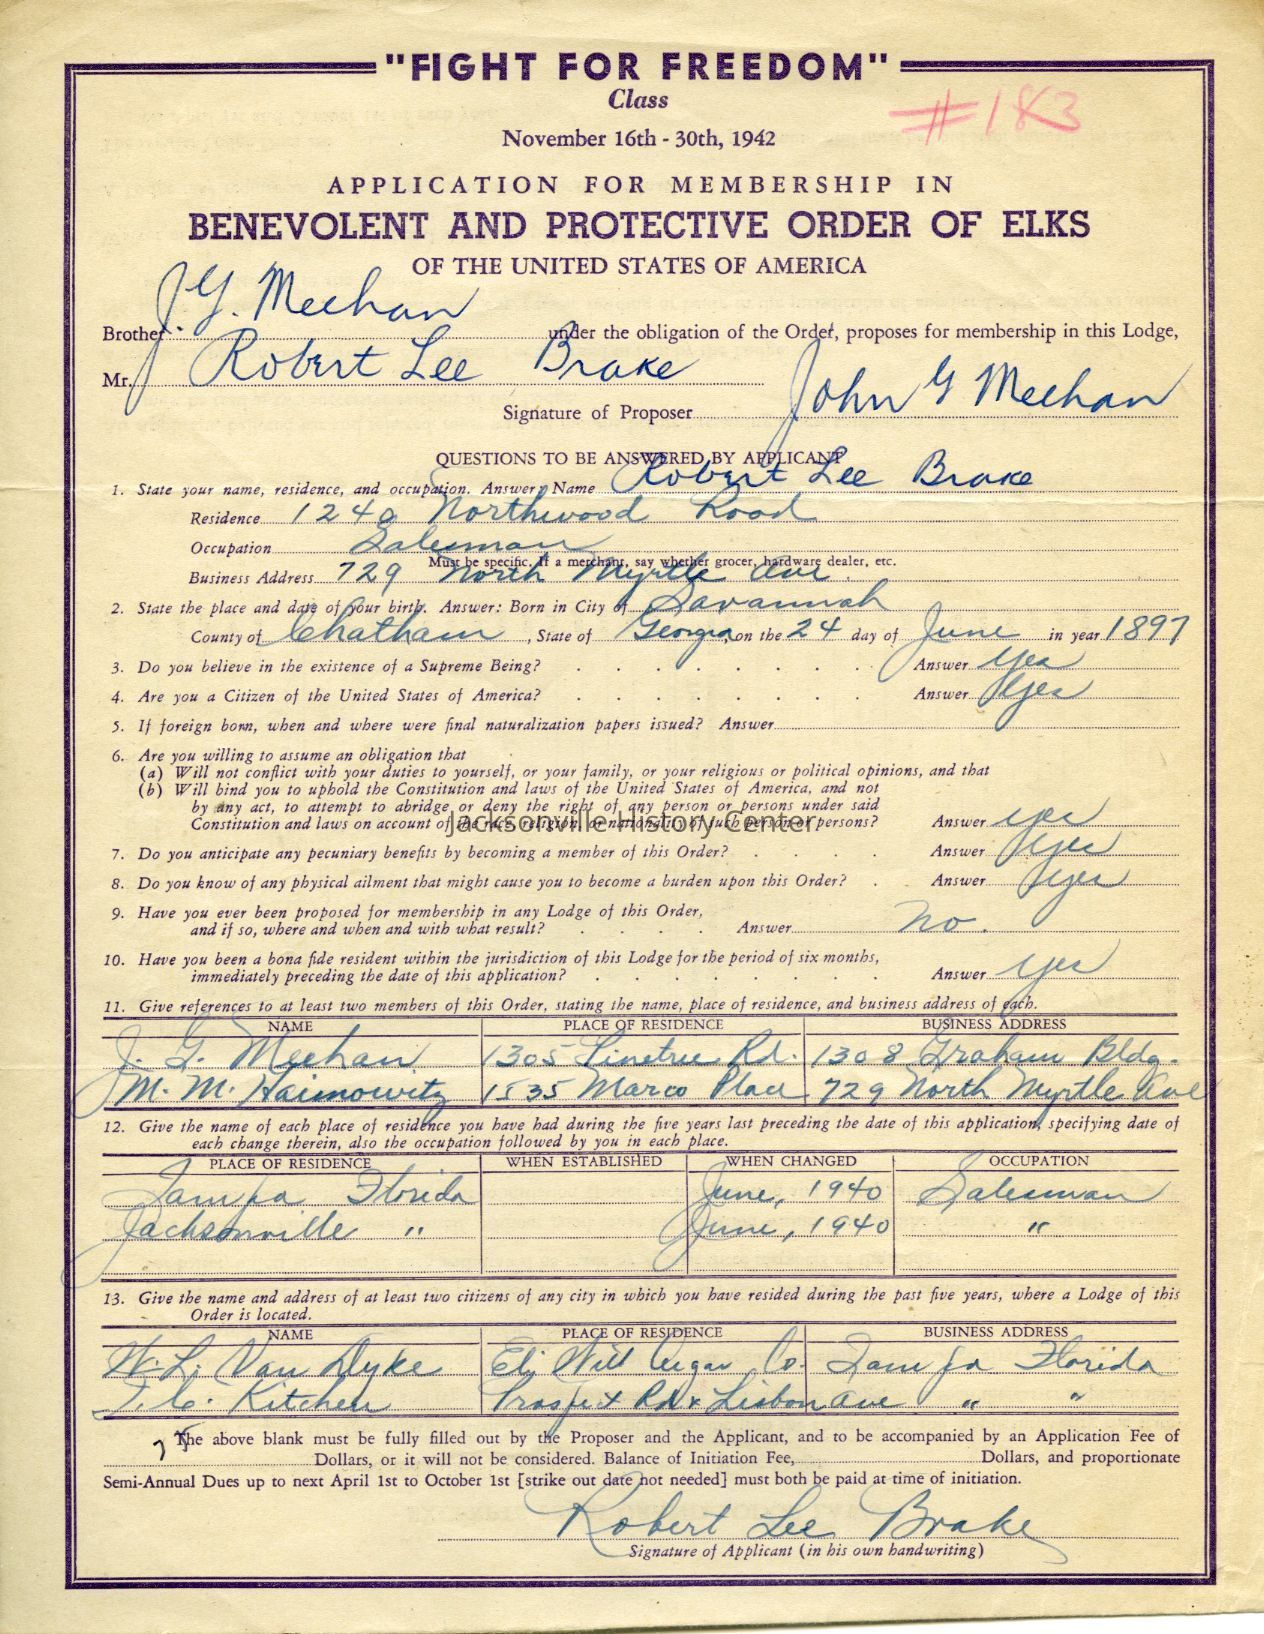 "FIGHT FOR FREEDOM"
Class
#183
November 16th - 30th, 1942
APPLICATION FOR MEMBERSHIP IN
BENEVOLENT AND PROTECTIVE ORDER OF ELKS
OF THE UNITED STATES OF AMERICA
Brother J. G. Meehan under the obligation of the Order, proposes for membership in this Lodge,
Mr. Robert Lee Brake
Signature of Proposer John G Meehan
QUESTIONS TO BE ANSWERED BY APPLICANT
1. State your name, residence, and occupation. Answer: Name Robert Lee Brake
Residence 1240 Northwood Road
Occupation Salesman
Must be specific. If a merchant, say whether grocer, hardware dealer, etc.
Business Address 729 North Myrtle Ave.
2. State the place and date of your birth. Answer: Born in City of Savannah
County of Chatham, State of Georgia, on the 24 day of June in year 1897
3. Do you believe in the existence of a Supreme Being? Answer Yes
4. Are you a Citizen of the United States of America? Answer Yes
5. If foreign born, when and where were final naturalization papers issued? Answer
6. Are you willing to assume an obligation that
(a) Will not conflict with your duties to yourself, or your family, or your religious or political opinions, and that
(b) Will bind you to uphold the Constitution and laws of the United States of America, and not
by any act, to attempt to abridge or deny the right of any person or persons under said
Constitution and laws on account of the race, religion, or nationality of such person or persons? Answer yes
Jacksonville History Center
7. Do you anticipate any pecuniary benefits by becoming a member of this Order? Answer Yes
8. Do you know of any physical ailment that might cause you to become a burden upon this Order? Answer Yes
9. Have you ever been proposed for membership in any Lodge of this Order,
and if so, where and when and with what result? Answer No.
10. Have you been a bona fide resident within the jurisdiction of this Lodge for the period of six months,
immediately preceding the date of this application? Answer Yes
11. Give references to at least two members of this Order, stating the name, place of residence, and business address of each.
NAME PLACE OF RESIDENCE BUSINESS ADDRESS
J. G. Meehan 1305 Pinetree Rd. 1308 Graham Bldg.
M. M. Haimowitz 1535 Marco Place 729 North Myrtle Ave
12. Give the name of each place of residence you have had during the five years last preceding the date of this application, specifying date of
each change therein, also the occupation followed by you in each place.
PLACE OF RESIDENCE WHEN ESTABLISHED WHEN CHANGED OCCUPATION
Tampa Florida June, 1940 Salesman
Jacksonville " June, 1940 "
13. Give the name and address of at least two citizens of any city in which you have resided during the past five years, where a Lodge of this
Order is located.
NAME PLACE OF RESIDENCE BUSINESS ADDRESS
W. L. Van Dyke Eli Witt Cigar Co. Tampa Florida
Kitchen Prospect Rd & Lisbon Ave " "
The above blank must be fully filled out by the Proposer and the Applicant, and to be accompanied by an Application Fee of
Dollars, or it will not be considered. Balance of Initiation Fee, Dollars, and proportionate
Semi-Annual Dues up to next April 1st to October 1st [strike out date not needed] must both be paid at time of initiation.
Robert Lee Brake
Signature of Applicant (in his own handwriting)